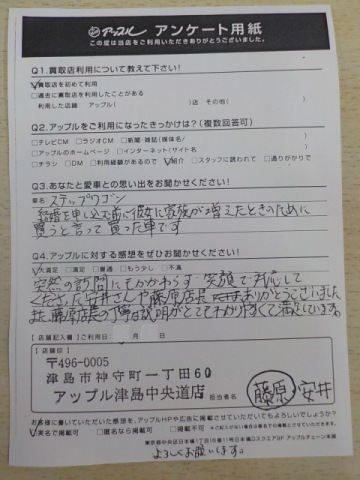 アップル アンケート用紙
この度は当店をご利用いただきありがとうございました。
Q1.買取店利用について教えて下さい!
□買取店を初めて利用
□過去に買取店を利用したことがある
利用した店舗: アップル( )店 その他( )
Q2.アップルをご利用になったきっかけは?(複数回答可)
□テレビCM □ラジオCM □新聞・雑誌(媒体名/ )
□アップルのホームページ □インターネット(サイト名 )
□チラシ □DM □利用経験があるので □紹介 □スタッフに誘われて □通りがかりで
Q3.あなたと愛車との思い出をお聞かせください!
車名 ステップワゴン
結婚を申し込む前に彼女に家族が増えたときのために
買うと言って買った車です
Q4.アップルに対する感想をぜひお聞かせください!
□大満足 □満足 □普通 □もう少し □不満
突然の訪問にもかかわらず 笑顔で対応して
くださった安井さんや藤原店長 ありがとうございました
また、藤原店長の丁寧な説明がとてもわかりやすくて満足しています。
【店舗記入欄】ご利用日: 月 日
【店舗印】
〒496-0005
津島市神守町一丁目60
アップル津島中央道店
担当者名 藤原 安井
お客様に書いていただいた感想を、アップルHPや広告に掲載させていただいてもよろしいでしょうか?
□実名で掲載可 □匿名なら掲載可 □掲載不可
よろしくお願いします。